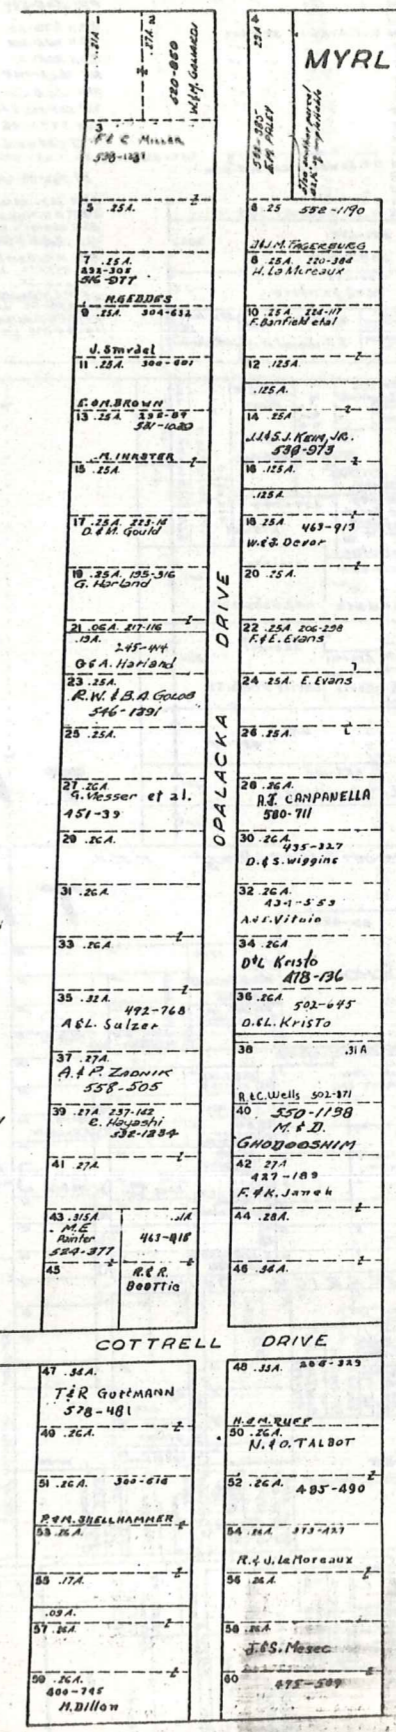 1
.21A
2
.27A.
520-850
W.&M.
3
F & C MILLER
5 .25A.
7 .25A.
292-305
516-977
H.GEDDES
9 .25A. 304-632
J. Smrdel
11 .25A. 300-601
E & M. BROWN
13 .25A
M. INKSTER
15 .25A.
17 .25A. 223-14
D. & M. Gould
19 .25A. 195-316
G. Harland
21 .06A. 217-116
.19A.
245-414
G & A. Harland
23 .25A.
R.W. & B.A GOLOB
546-1391
25 .25A.
27 .26A
G. Messer et al.
451-39
29 .26A.
31 .26A.
33 .26A.
35 .32A
492-768
A & L. Sulzer
37 .27A.
A. & P. ZADNIK
558-505
39 .27A 237-162
E. Hayashi
532-1234
41 .27A.
43 .315A
M.E
Painter
524-377
.11A
461-918
45
R. & R.
BEATTIE
OPALACKA DRIVE
MYRL
4
.22A
E & M PALEY
6 .25 552-1190
J & J.M. FAGERBURG
8 .25A. 220-384
H. La Moreaux
10 .25A 224-117
F. Banfield etal
12 .125A.
.125A.
14 .25A
J.J. & S.J. KEIM, JR.
530-973
16 .125A.
.125A
18 .25A 463-913
W. & J. Devor
20 .25A.
22 .25A 206-298
F. & E. Evans
24 .25A. E. Evans
26 .25A.
28 .26A.
A.J. CAMPANELLA
580-711
30 .26A.
435-327
D. & S. Wiggins
32 .26A.
431-553
A. & E. Vitaio
34 .26A
D & L Kristo
478-136
36 .26A
502-645
D. & L. KRISTO
38 .31A
R. & C. Wells 502-371
40 550-1198
M. & D.
GHODOOSHIM
42 .27A
427-189
F. & K. Janeh
44 .28A.
46 .36A.
COTTRELL DRIVE
47 .36A.
T & R GUTTMANN
578-481
49 .26A.
51 .26A. 300-618
P. & M. SHELLHAMMER
53 .26A.
55 .17A.
.09A.
57 .26A.
59 .26A.
400-745
M. Dillon
48 .33A. 204-329
H. & M. RUFF
50 .26A.
N. & O. TALBOT
52 .26A.
485-490
54 .26A 373-427
R. & J. La Moreaux
56 .26A.
58 .26A
J. & S. Mesec
60 475-509